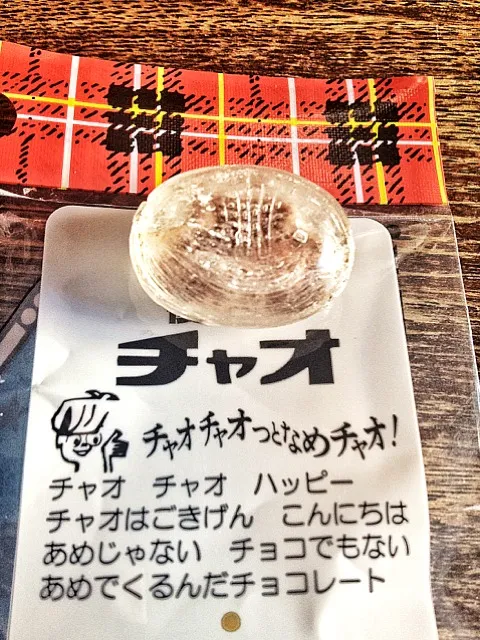 チャオ
チャオチャオっとなめチャオ!
チャオ チャオ ハッピー
チャオはごきげん こんにちは
あめじゃない チョコでもない
あめでくるんだチョコレート